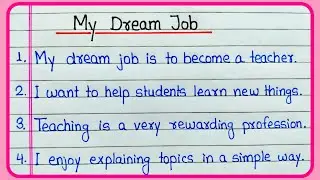 My Dream Job
1. My dream job is to become a teacher.
2. I want to help students learn new things.
3. Teaching is a very rewarding profession.
4. I enjoy explaining topics in a simple way.